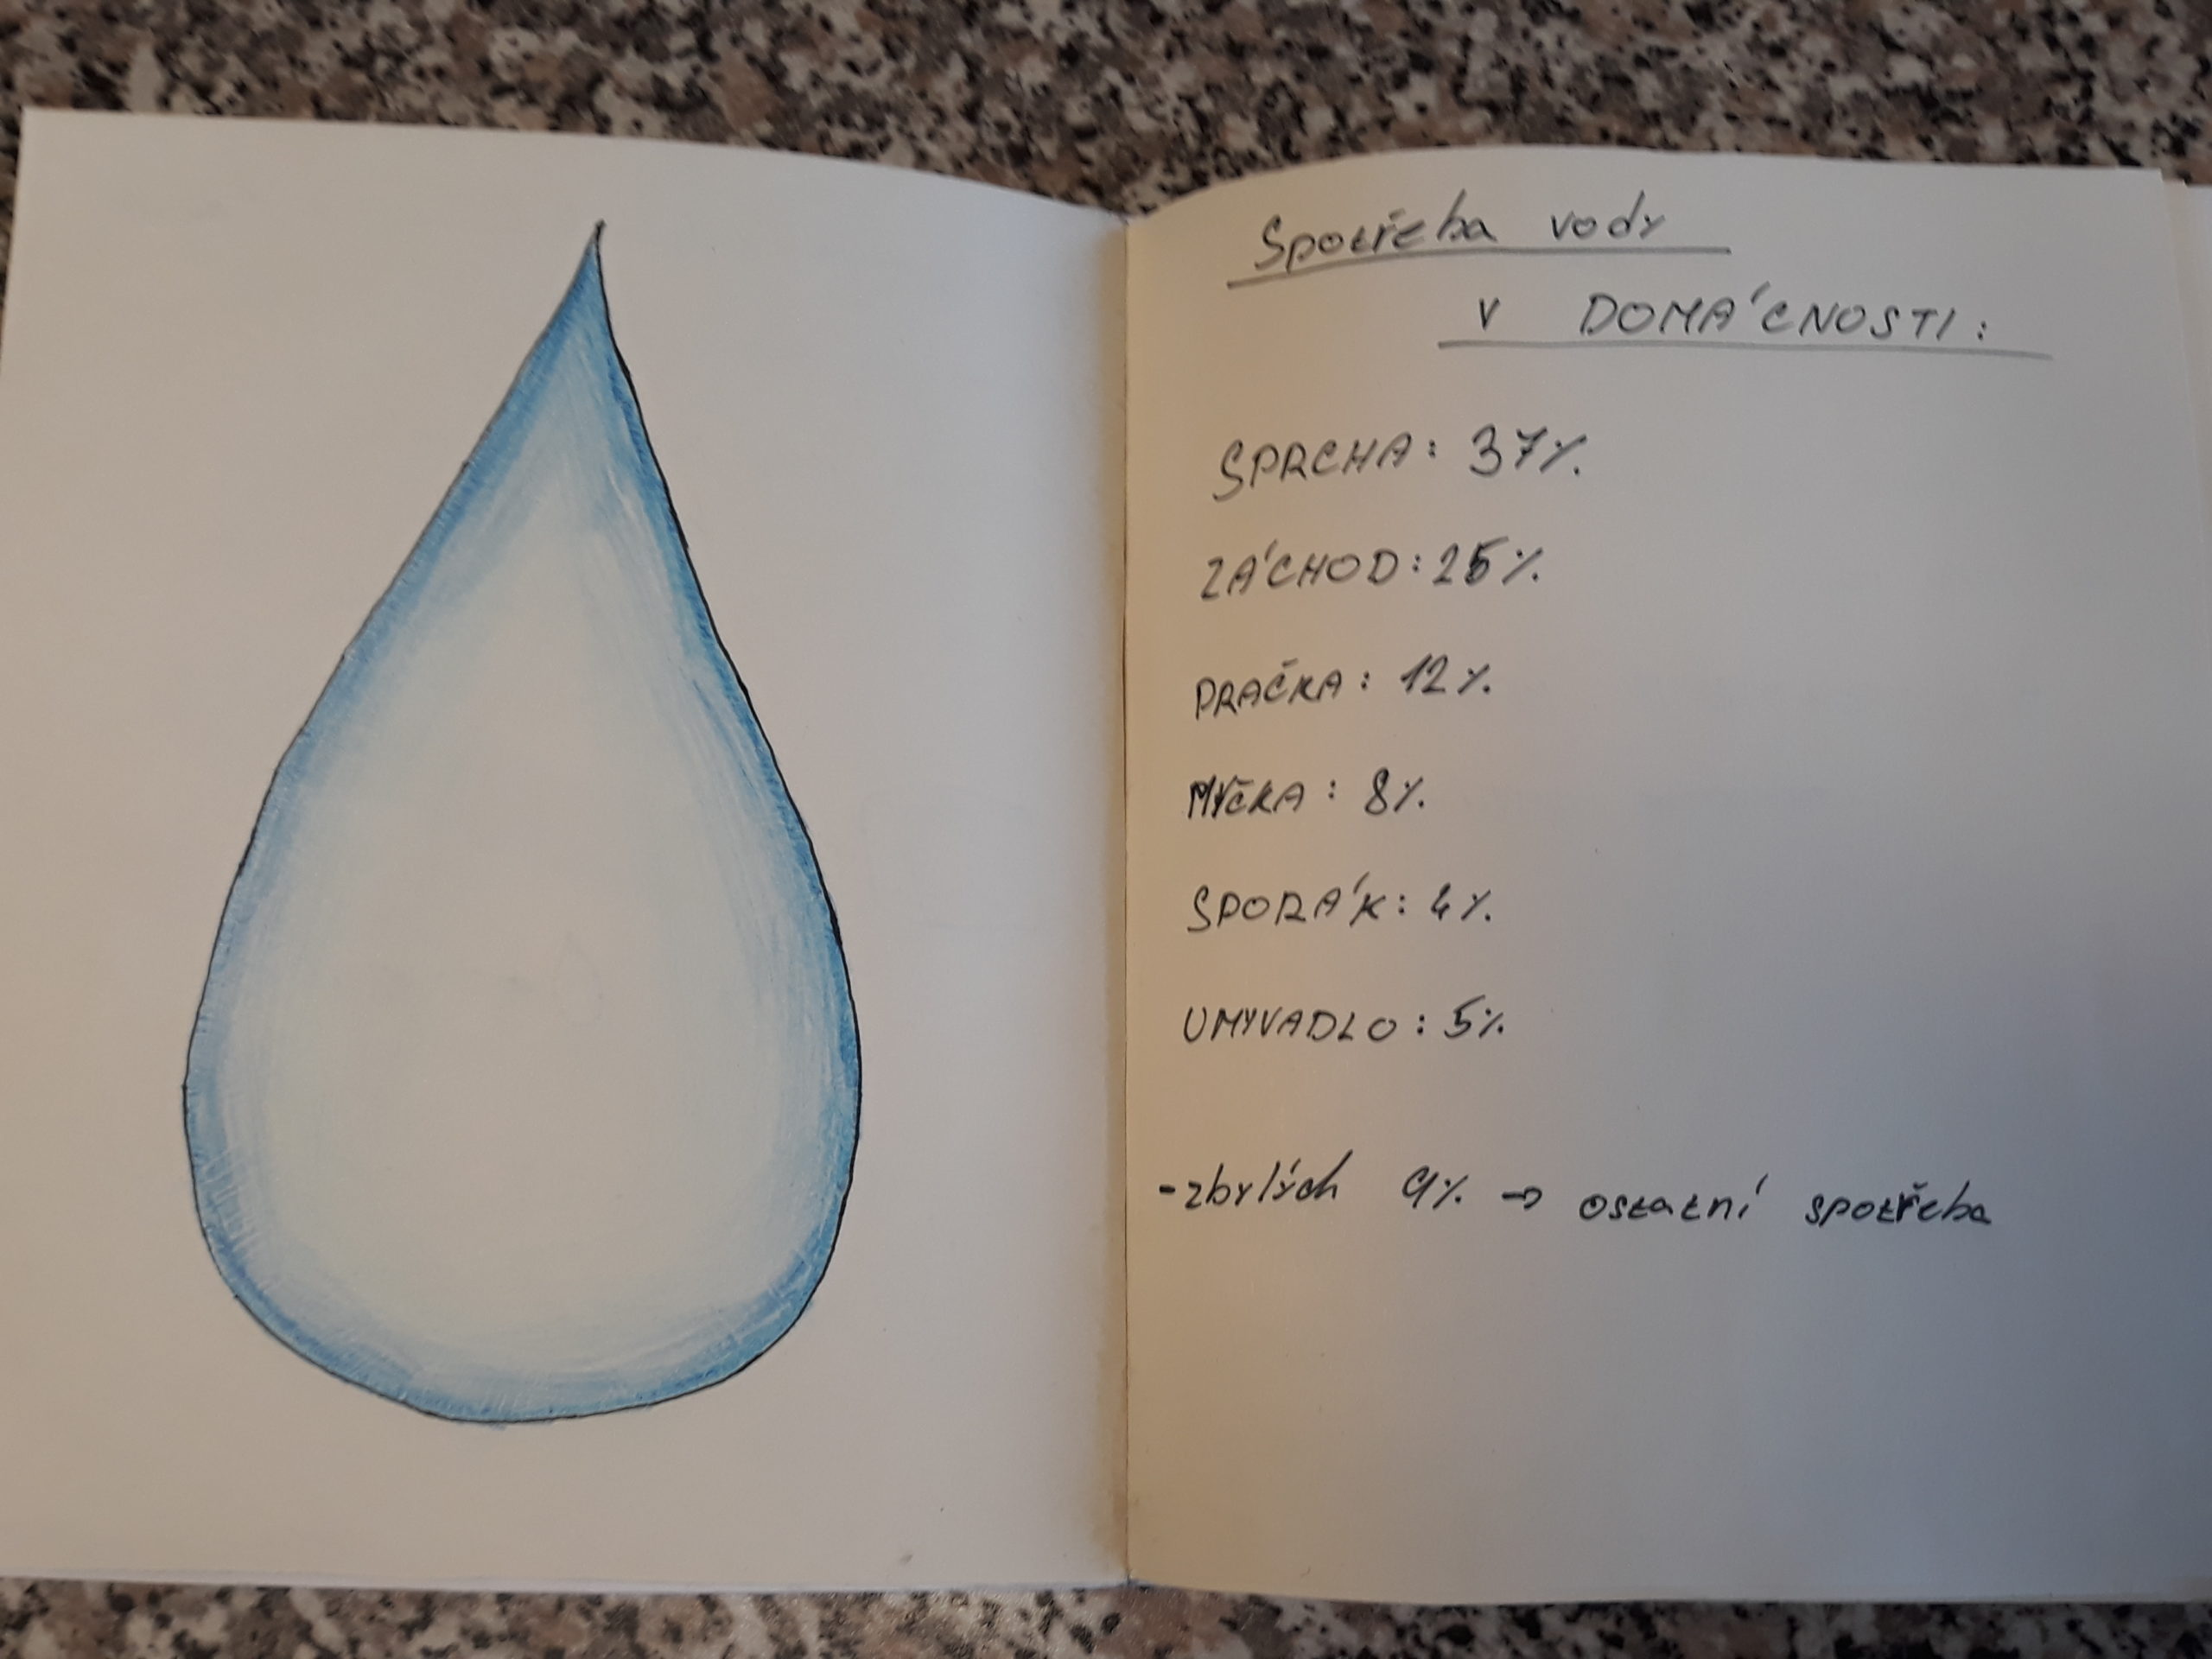 Spotřeba vody
v DOMÁCNOSTI:
SPRCHA: 37%
ZÁCHOD: 25%
PRAČKA: 12%
MYČKA: 8%
SPORÁK: 4%
UMYVADLO: 5%
-zbylých 9% → ostatní spotřeba